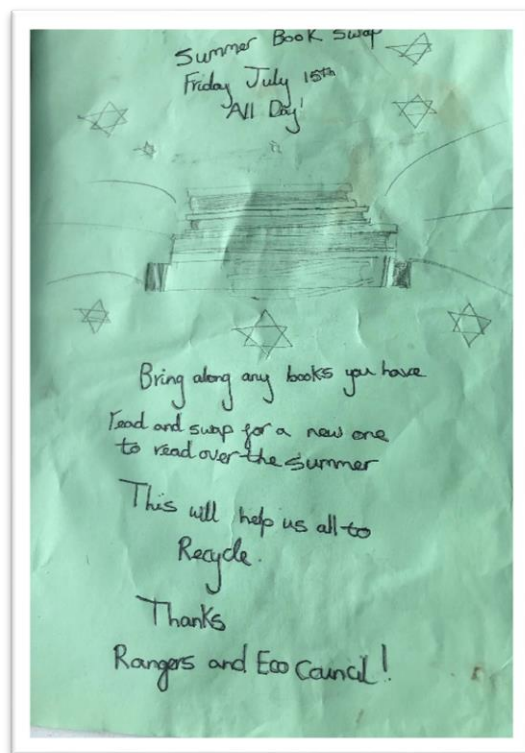 Summer Book Swap
Friday July 15th
All Day!
Bring along any books you have
read and swap for a new one
to read over the summer
This will help us all to
Recycle.
Thanks
Rangers and Eco Council!